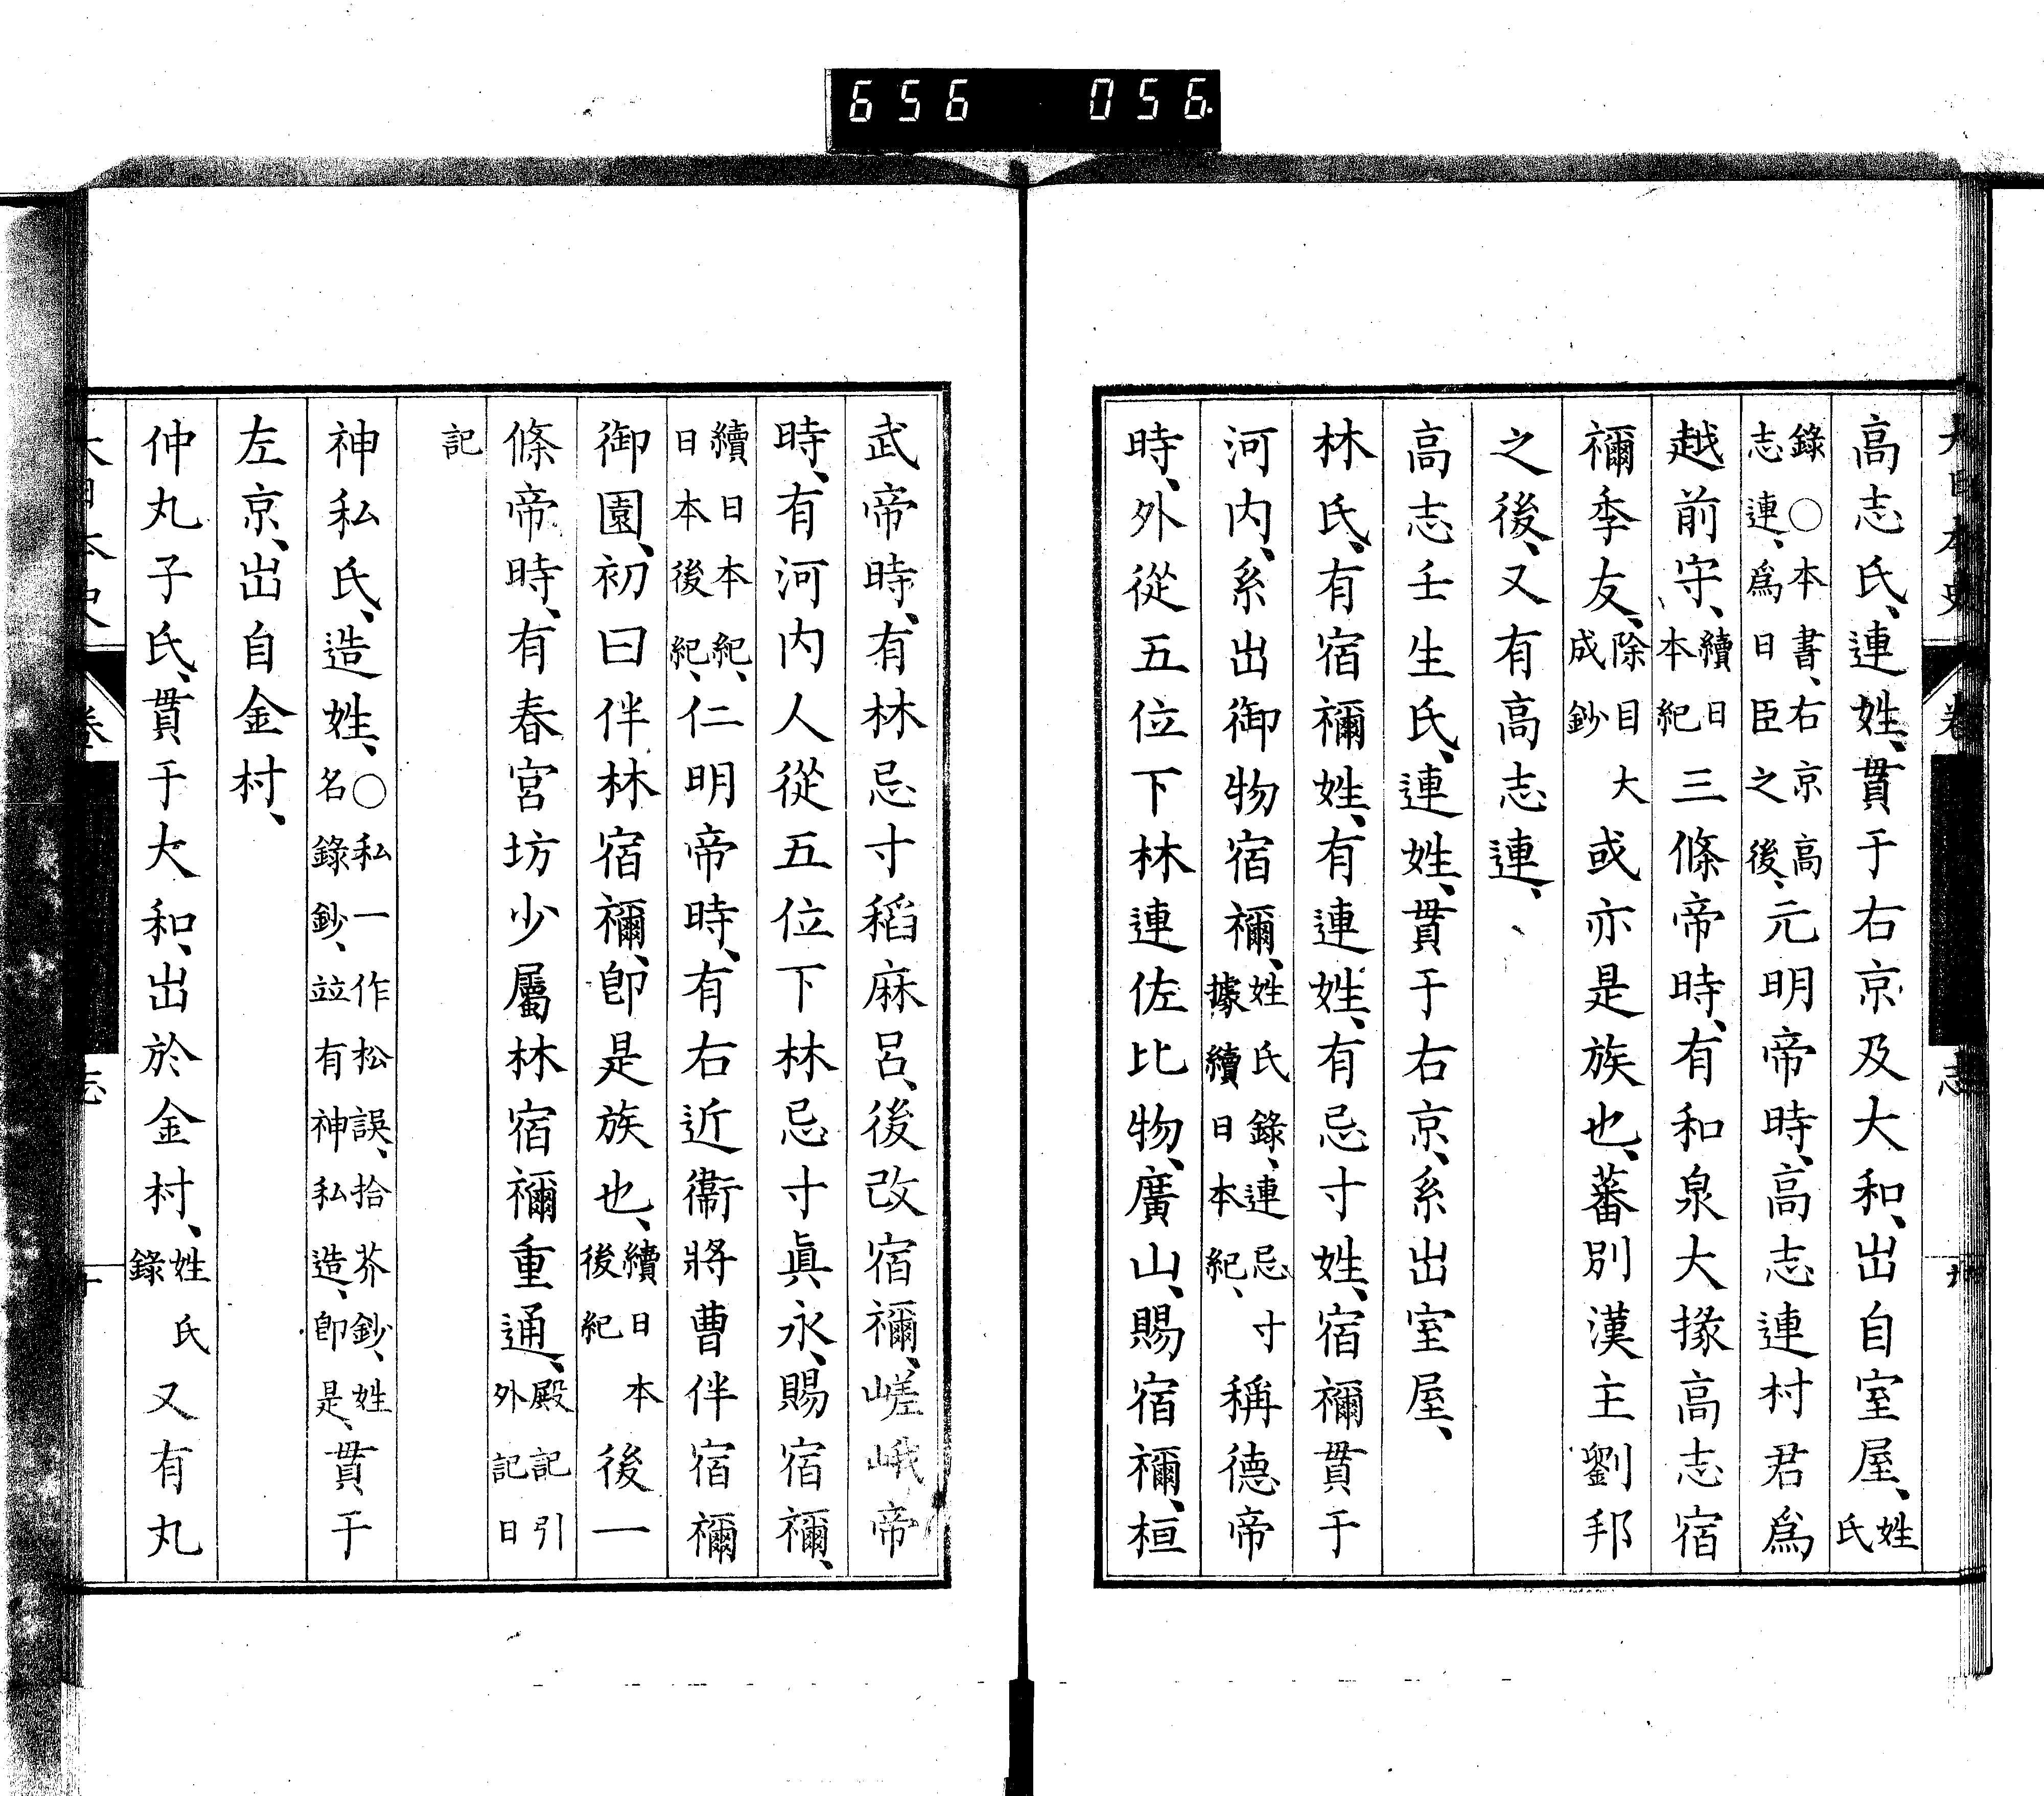 656 056
高志氏、連姓、貫于右京及大和、出自室屋、姓氏
錄○本書、右京高志連、爲日臣之後、元明帝時、高志連村君爲
越前守、續日本紀三條帝時、有和泉大掾高志宿
禰季友、除目大成鈔或亦是族也、蕃別漢主劉邦
之後、又有高志連、
高志壬生氏、連姓、貫于右京、系出室屋、
林氏、有宿禰姓、有連姓、有忌寸姓、宿禰貫于
河內、系出御物宿禰、姓氏錄、連忌寸據續日本紀、稱德帝
時、外從五位下林連佐比物、廣山、賜宿禰、桓
武帝時、有林忌寸稻麻呂、後改宿禰、嵯峨帝
時、有河內人從五位下林忌寸眞永、賜宿禰、
續日本紀、日本後紀、仁明帝時、有右近衞將曹伴宿禰
御園、初曰伴林宿禰、卽是族也、續日本後紀後一
條帝時、有春宮坊少屬林宿禰重通、殿記引外記日
記
神私氏、造姓、○私一作松誤、拾芥鈔、姓名錄鈔、竝有神私造、卽是、貫于
左京、出自金村、
仲丸子氏、貫于大和、出於金村、姓氏錄又有丸